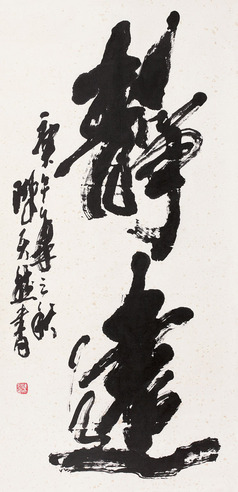 靜遠
庚午年之秋
陳天然書